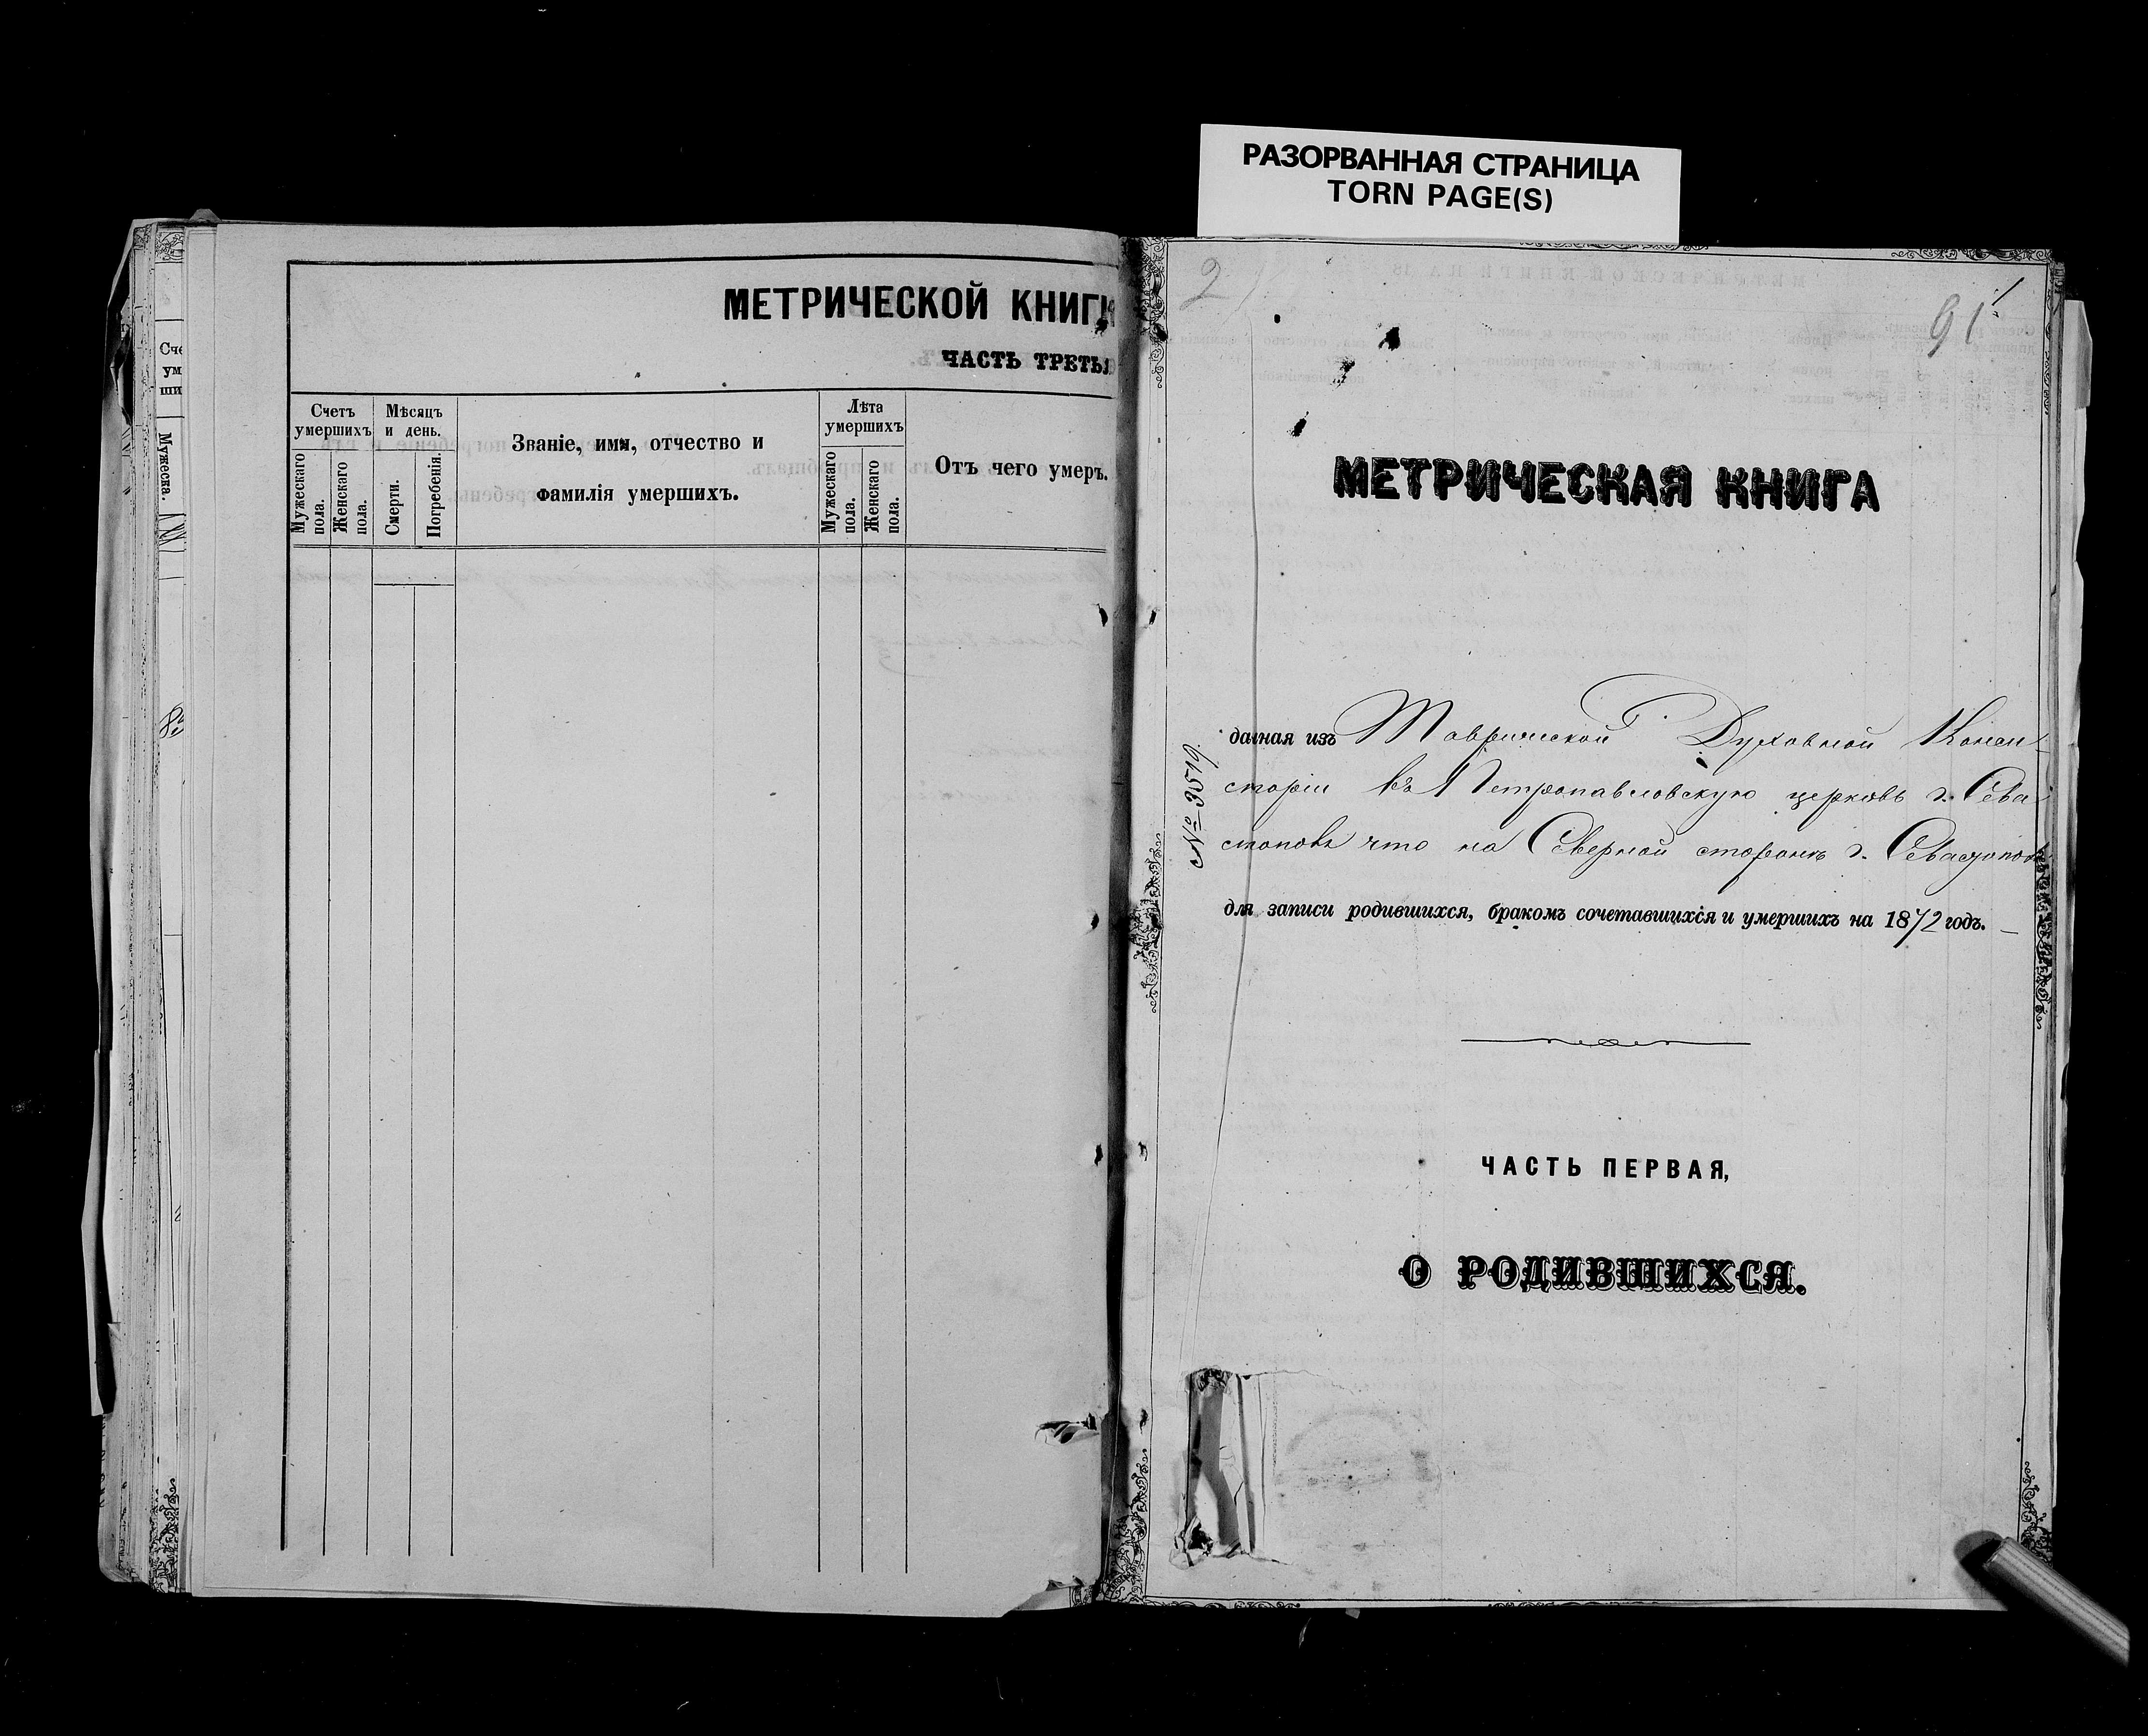 РАЗОРВАННАЯ СТРАНИЦА
TORN PAGE(S)
МЕТРИЧЕСКОЙ КНИГИ
ЧАСТЬ ТРЕТЬЯ
Счетъ умершихъ
Мужескаго пола.
Женскаго пола.
Мѣсяцъ и день.
Смерти.
Погребенія.
Званіе, имя, отчество и
фамилія умершихъ.
Лѣта умершихъ
Мужескаго пола.
Женскаго пола.
Отъ чего умеръ.
Сче
ум
ши
Мужеска.
2
91
МЕТРИЧЕСКАЯ КНИГА
№ 3519.
данная изъ Таврической Духовной Конси
сторіи въ Петропавловскую церковь г. Сева
стополь что на Северной сторонѣ г. Севастопол
для записи родившихся, бракомъ сочетавшихся и умершихъ на 1872 годъ.
ЧАСТЬ ПЕРВАЯ,
О РОДИВШИХСЯ.